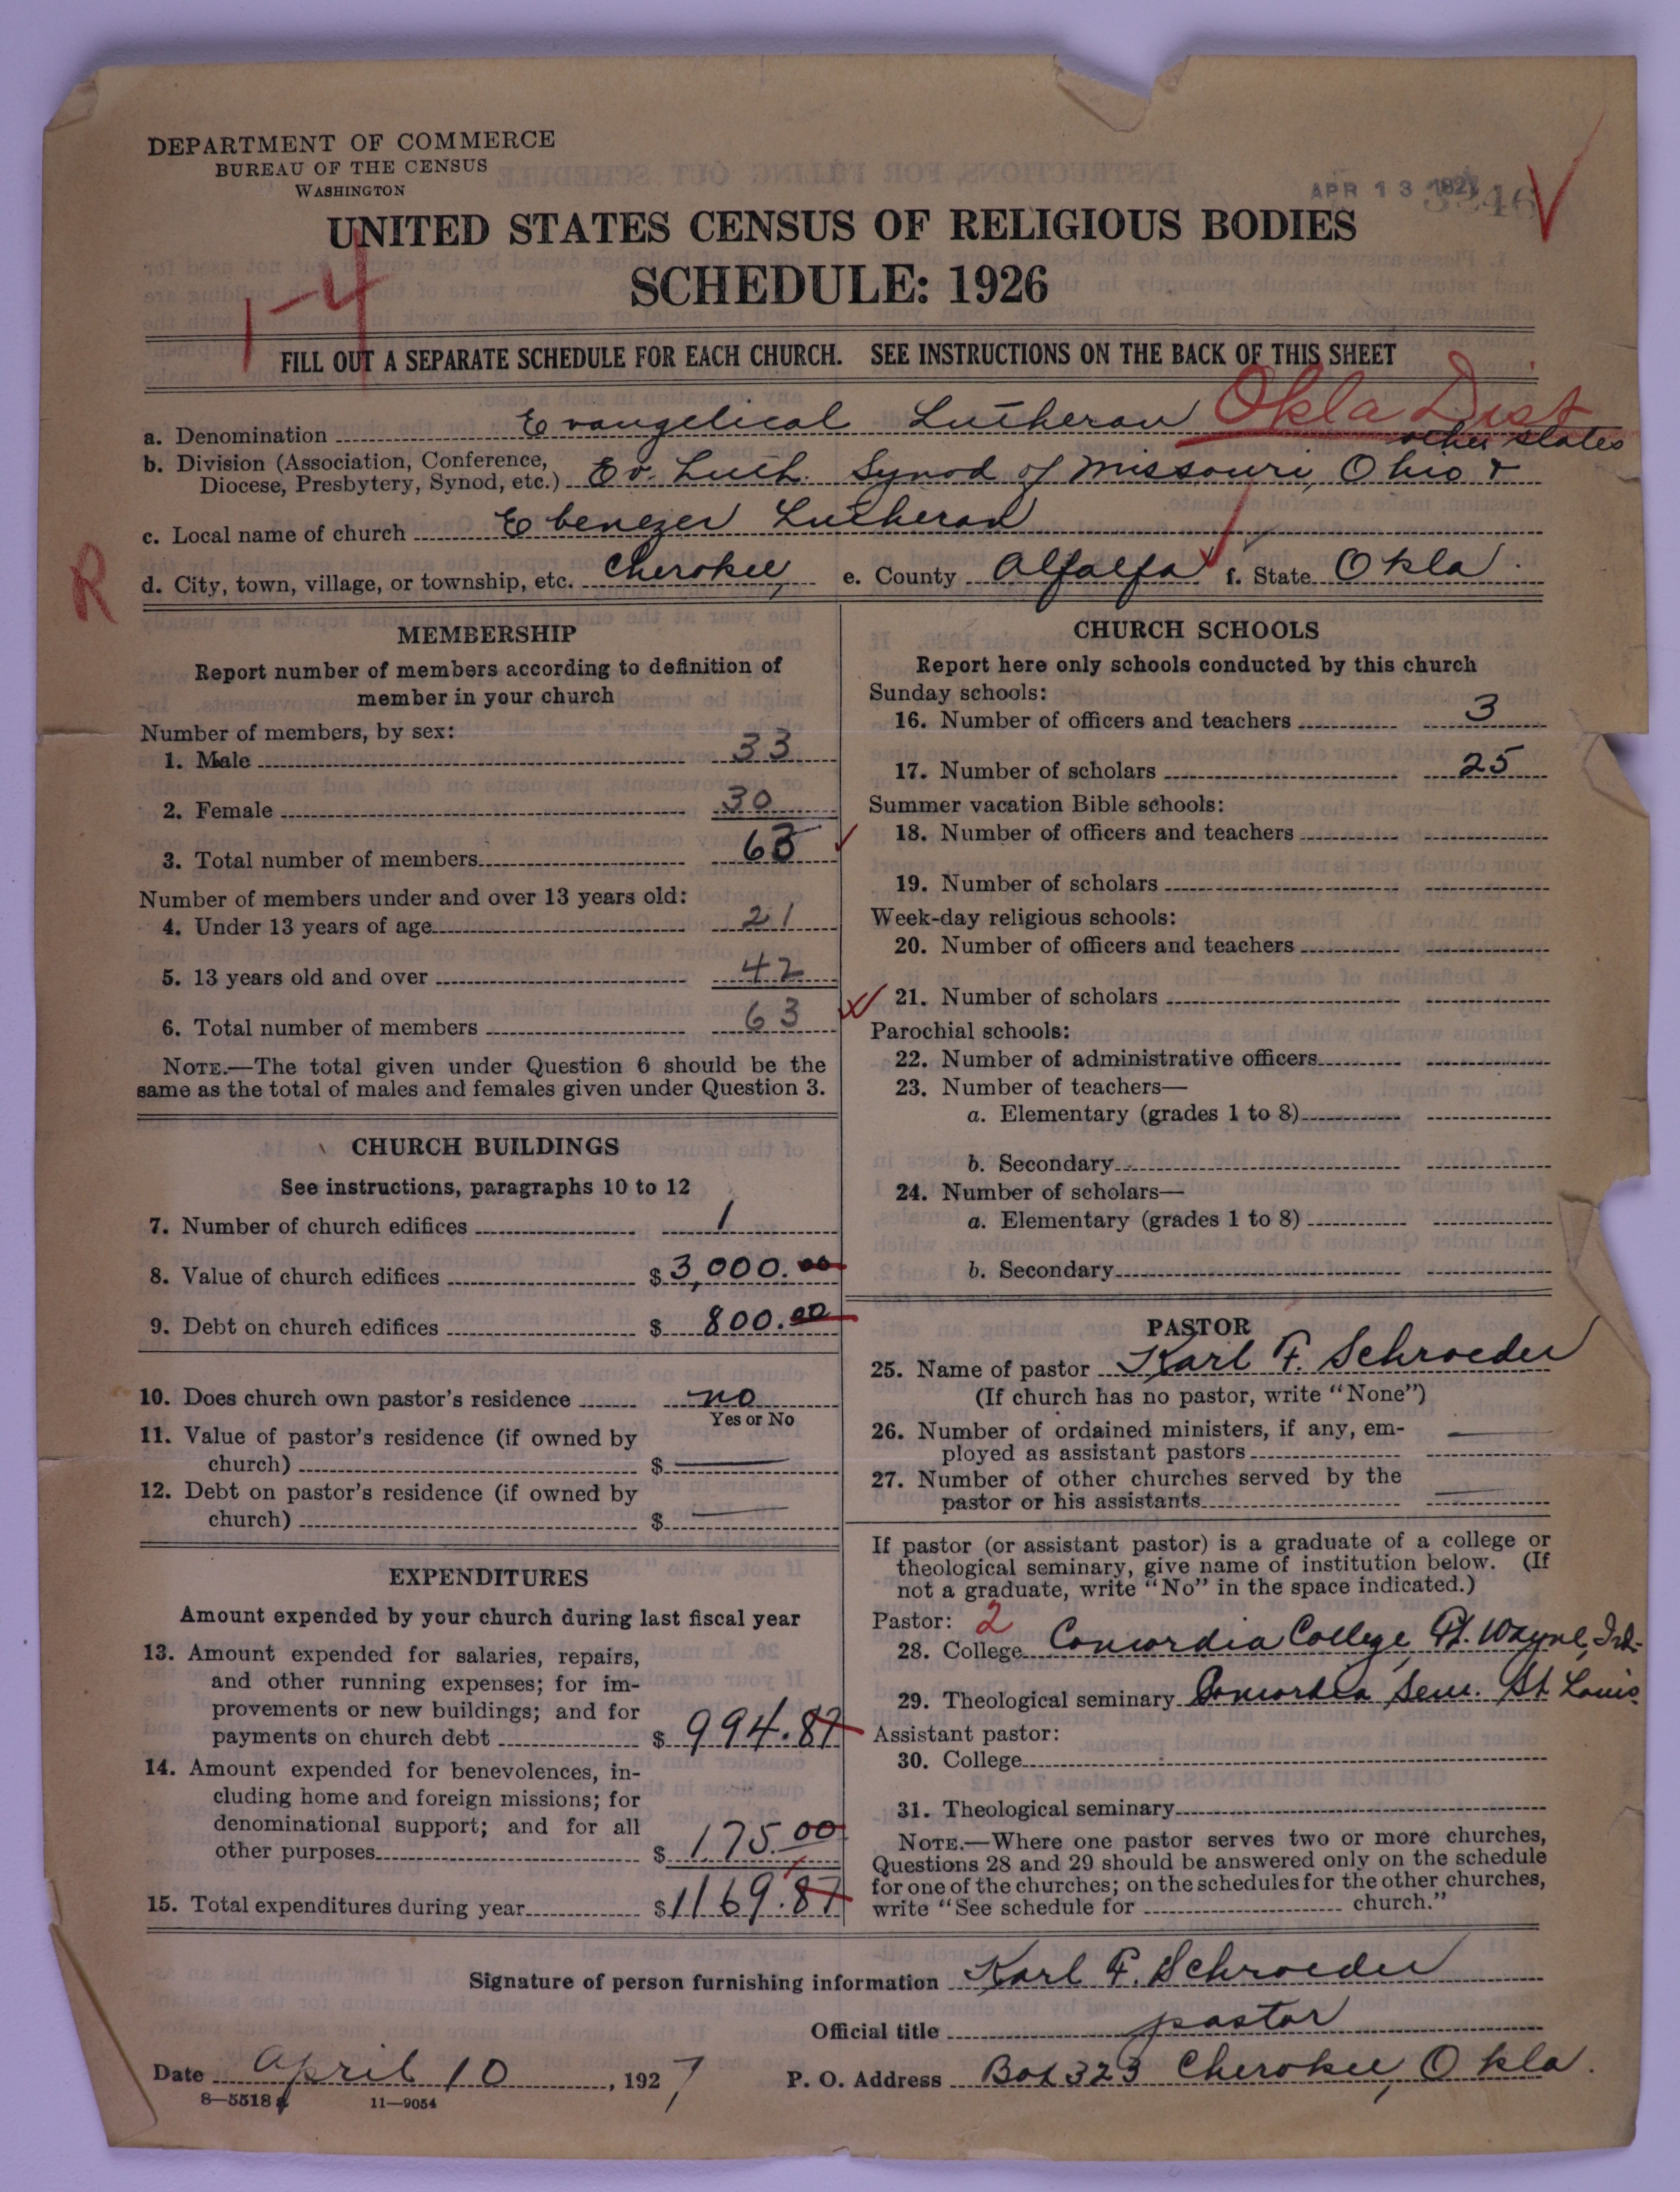 DEPARTMENT OF COMMERCE
BUREAU OF THE CENSUS
WASHINGTON
APR 13 1927
UNITED STATES CENSUS OF RELIGIOUS BODIES
SCHEDULE: 1926
1-4
FILL OUT A SEPARATE SCHEDULE FOR EACH CHURCH. SEE INSTRUCTIONS ON THE BACK OF THIS SHEET
Okla Dist
a. Denomination Evangelical Lutheran
other states
b. Division (Association, Conference,
Diocese, Presbytery, Synod, etc.) Ev. Luth. Synod of Missouri, Ohio &
c. Local name of church Ebenezer Lutheran
R
d. City, town, village, or township, etc. Cherokee e. County Alfalfa f. State Okla.
MEMBERSHIP
Report number of members according to definition of
member in your church
Number of members, by sex:
1. Male 33
2. Female 30
3. Total number of members 63
Number of members under and over 13 years old:
4. Under 13 years of age 21
5. 13 years old and over 42
6. Total number of members 63
NOTE.—The total given under Question 6 should be the
same as the total of males and females given under Question 3.
CHURCH BUILDINGS
See instructions, paragraphs 10 to 12
7. Number of church edifices 1
8. Value of church edifices $ 3,000.00
9. Debt on church edifices $ 800.00
10. Does church own pastor's residence no
Yes or No
11. Value of pastor's residence (if owned by
church) $ —
12. Debt on pastor's residence (if owned by
church) $ —
EXPENDITURES
Amount expended by your church during last fiscal year
13. Amount expended for salaries, repairs,
and other running expenses; for im-
provements or new buildings; and for
payments on church debt $ 994.87
14. Amount expended for benevolences, in-
cluding home and foreign missions; for
denominational support; and for all
other purposes $ 175.00
15. Total expenditures during year $ 1169.87
CHURCH SCHOOLS
Report here only schools conducted by this church
Sunday schools:
16. Number of officers and teachers 3
17. Number of scholars 25
Summer vacation Bible schools:
18. Number of officers and teachers
19. Number of scholars
Week-day religious schools:
20. Number of officers and teachers
21. Number of scholars
Parochial schools:
22. Number of administrative officers
23. Number of teachers—
a. Elementary (grades 1 to 8)
b. Secondary
24. Number of scholars—
a. Elementary (grades 1 to 8)
b. Secondary
PASTOR
25. Name of pastor Karl F. Schroeder
(If church has no pastor, write "None")
26. Number of ordained ministers, if any, em-
ployed as assistant pastors —
27. Number of other churches served by the
pastor or his assistants —
If pastor (or assistant pastor) is a graduate of a college or
theological seminary, give name of institution below. (If
not a graduate, write "No" in the space indicated.)
Pastor: 2
28. College Concordia College, Ft. Wayne, Ind.
29. Theological seminary Concordia Sem. St. Louis
Assistant pastor:
30. College
31. Theological seminary
NOTE.—Where one pastor serves two or more churches,
Questions 28 and 29 should be answered only on the schedule
for one of the churches; on the schedules for the other churches,
write "See schedule for church."
Signature of person furnishing information Karl F. Schroeder
Official title pastor
Date April 10, 1927 P. O. Address Box 323 Cherokee, Okla.
8—5518 a 11—9054